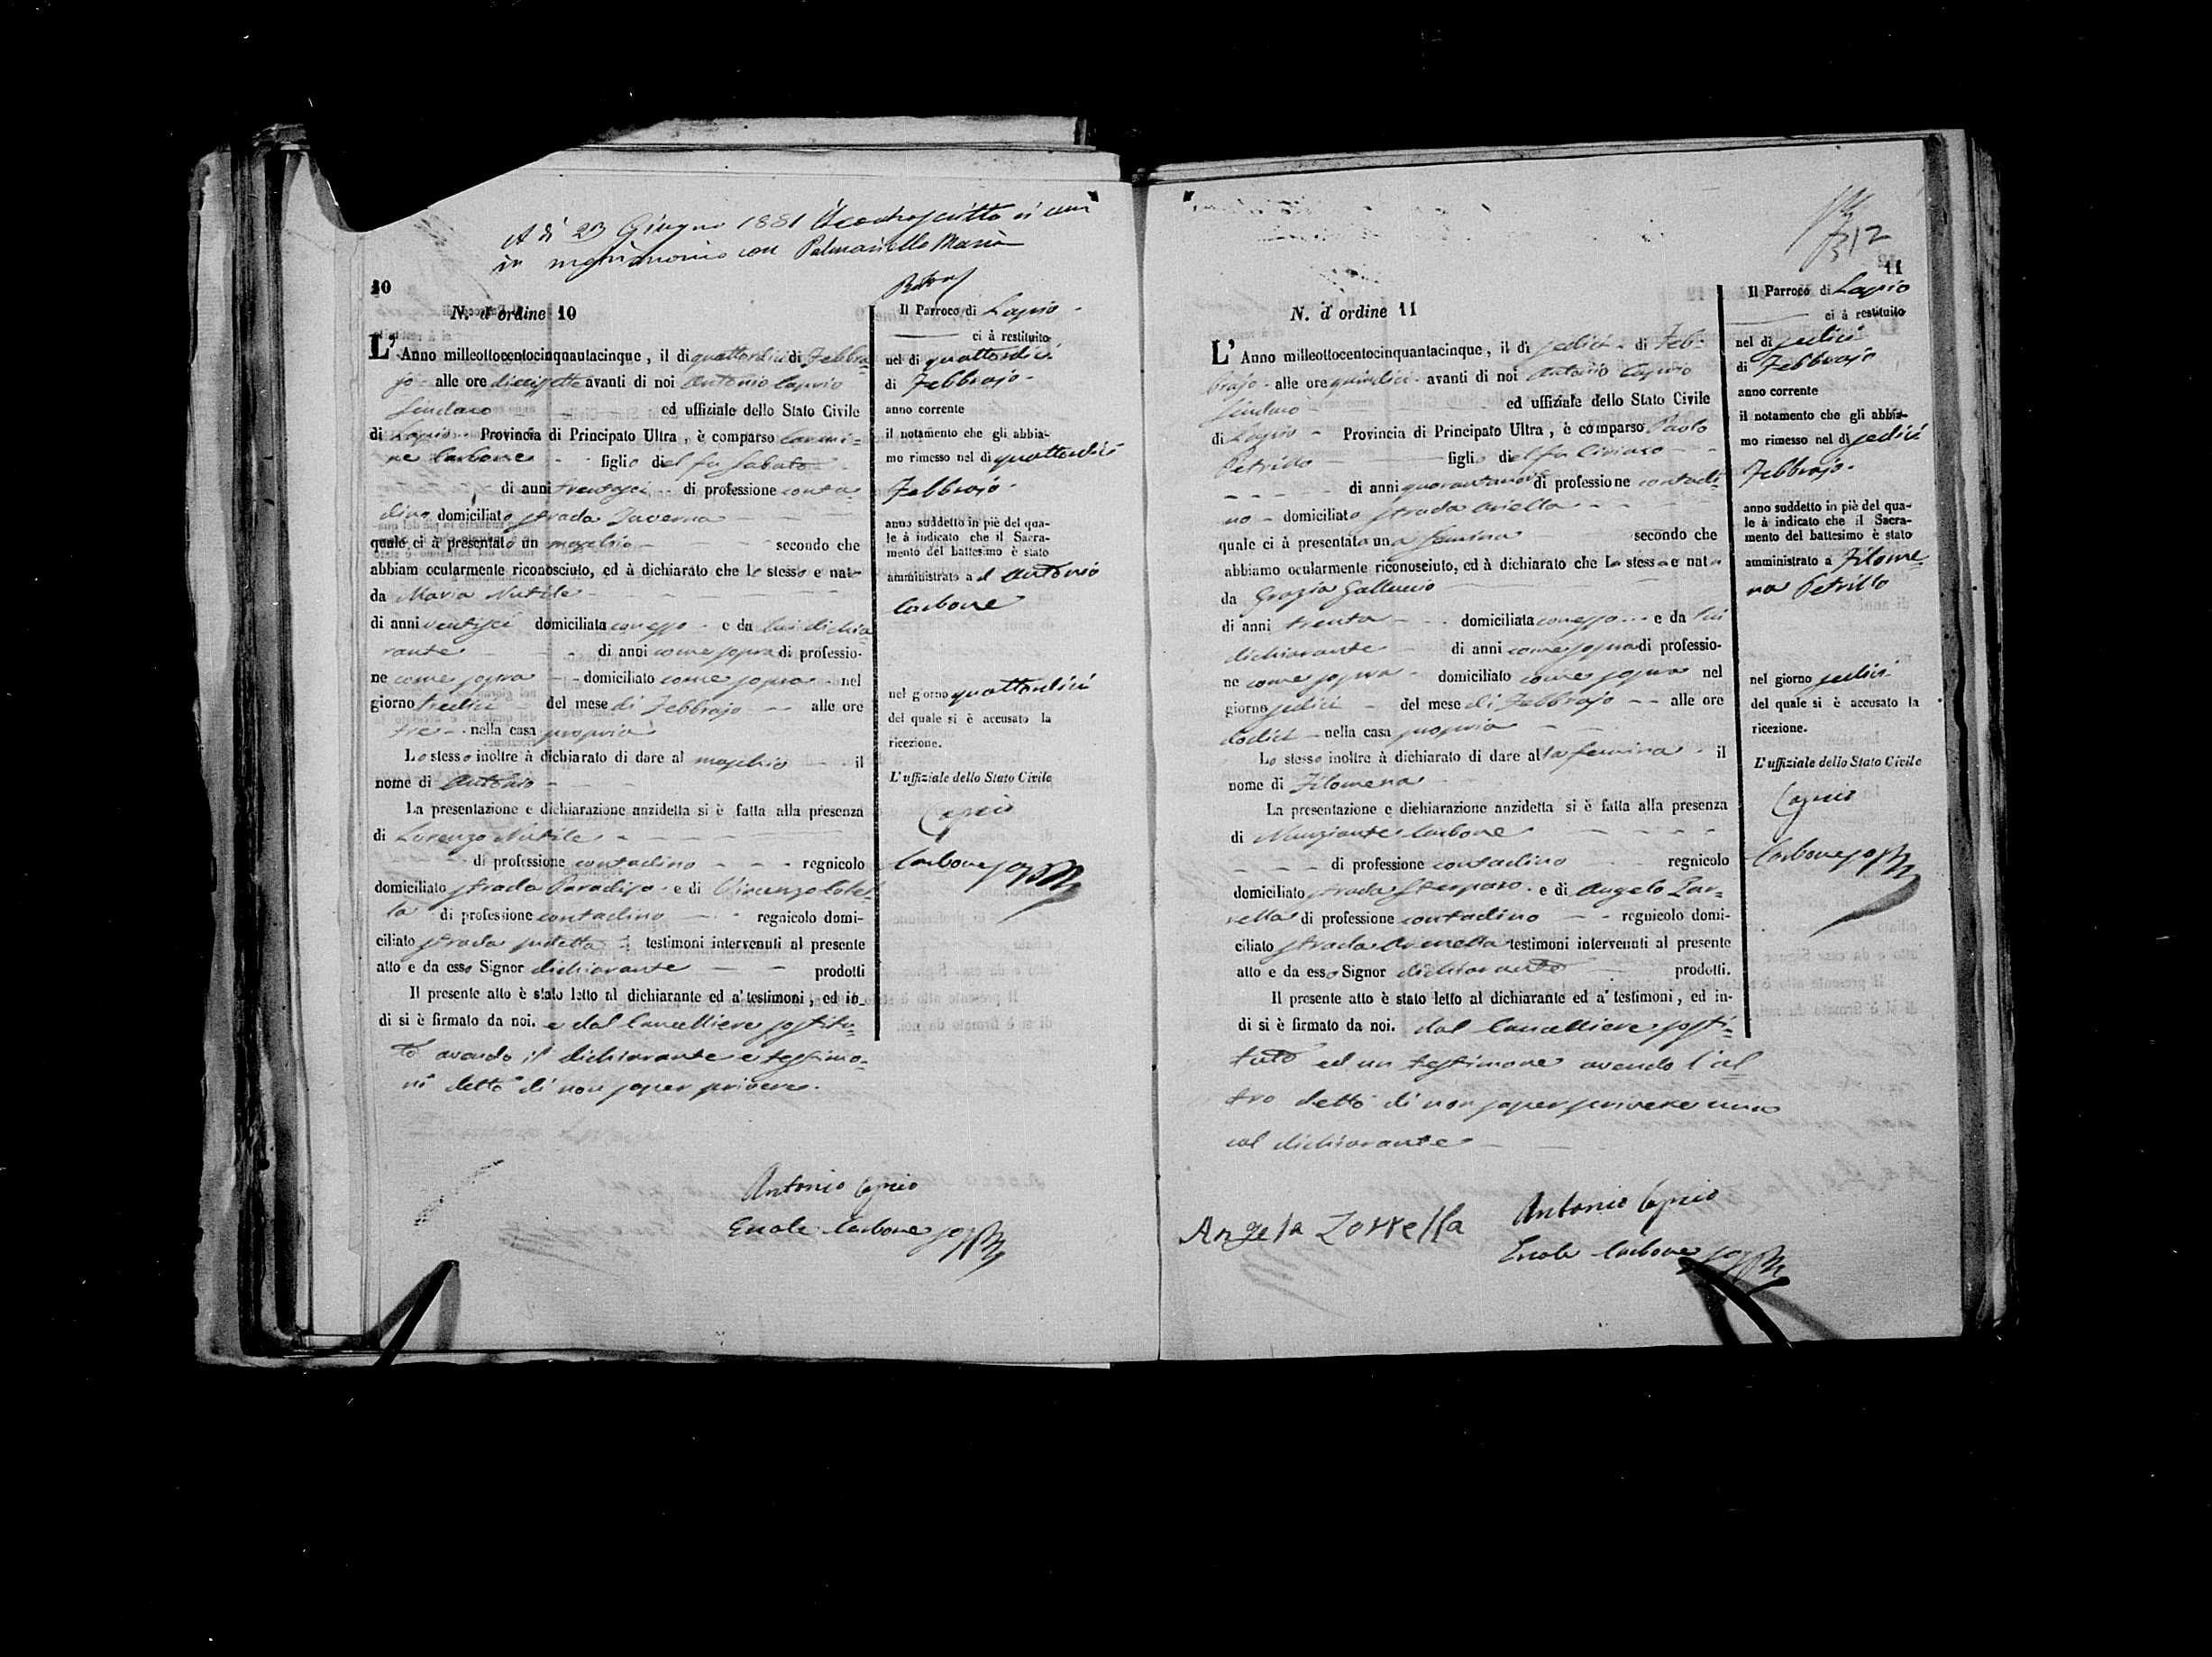 A dì 23 Giugno 1881 il controscritto si unì
in matrimonio con Palmariello Maria
10
N. d'ordine 10
L'Anno milleottocentocinquantacinque, il dì quattordici di Febbra-
jo alle ore diecisette avanti di noi Antonio Caprio
Sindaco ed uffiziale dello Stato Civile
di Lapio Provincia di Principato Ultra, è comparso Carmi-
ne Carbone figlio del fu Sabato
di anni trentasei di professione conta-
dino domiciliato strada Taverna
quale ci à presentato un maschio secondo che
abbiam ocularmente riconosciuto, ed à dichiarato che lo stesso e nato
da Maria Nutile
di anni ventisei domiciliata con esso e da lui dichia-
rante di anni come sopra di professio-
ne come sopra domiciliato come sopra nel
giorno tredici del mese di Febbrajo alle ore
tre nella casa propria
Lo stesso inoltre à dichiarato di dare al maschio il
nome di Antonio
La presentazione e dichiarazione anzidetta si è fatta alla presenza
di Lorenzo Nutile
di professione contadino regnicolo
domiciliato strada Paradiso e di Vincenzo Colel-
la di professione contadino regnicolo domi-
ciliato strada sudetta testimoni intervenuti al presente
atto e da esso Signor dichiarante prodotti
Il presente atto è stato letto al dichiarante ed a' testimoni, ed in-
di si è firmato da noi. e dal Cancelliere sostitu-
to avendo il dichiarante e testimo-
ni detto di non saper scrivere.
Antonio Caprio
Carbone
Il Parroco di Lapio
ci à restituito
nel dì quattordici
di Febbrajo
anno corrente
il notamento che gli abbia-
mo rimesso nel dì quattordici
Febbrajo
anno suddetto in piè del qua-
le à indicato che il Sacra-
mento del battesimo è stato
amministrato a d Antonio
Carbone
nel giorno quattordici
del quale si è accusato la
ricezione.
L'uffiziale dello Stato Civile
Caprio
Carbone
312
11
N. d'ordine 11
L'Anno milleottocentocinquantacinque, il dì sedici di Feb-
brajo alle ore quindici avanti di noi Antonio Caprio
Sindaco ed uffiziale dello Stato Civile
di Lapio Provincia di Principato Ultra, è comparso Paolo
Petrillo figlio del fu Ciriaco
di anni quarantanove di professione contadi-
no domiciliato strada Ariella
quale ci à presentata una femina secondo che
abbiamo ocularmente riconosciuto, ed à dichiarato che la stessa e nata
da Grazia Galluccio
di anni trenta domiciliata con esso e da lui
dichiarante di anni come sopra di professio-
ne come sopra domiciliato come sopra nel
giorno sedici del mese di Febbrajo alle ore
dodici nella casa propria
Lo stesso inoltre à dichiarato di dare alla femina il
nome di Filomena
La presentazione e dichiarazione anzidetta si è fatta alla presenza
di Nunziante Carbone
di professione contadino regnicolo
domiciliato strada e di Angelo Zar-
rella di professione contadino regnicolo domi-
ciliato strada testimoni intervenuti al presente
atto e da esso Signor dichiarante prodotti.
Il presente atto è stato letto al dichiarante ed a' testimoni, ed in-
di si è firmato da noi. dal Cancelliere sosti-
tuto ed un testimone avendo l'al-
tro detto di non saper scrivere
col dichiarante
Antonio Caprio
Carbone
Il Parroco di Lapio
ci à restituito
nel dì sedici
di Febbrajo
anno corrente
il notamento che gli abbia-
mo rimesso nel dì sedici
Febbrajo
anno suddetto in piè del qua-
le à indicato che il Sacra-
mento del battesimo è stato
amministrato a Filome-
na Petrillo
nel giorno sedici
del quale si è accusato la
ricezione.
L'uffiziale dello Stato Civile
Caprio
Carbone